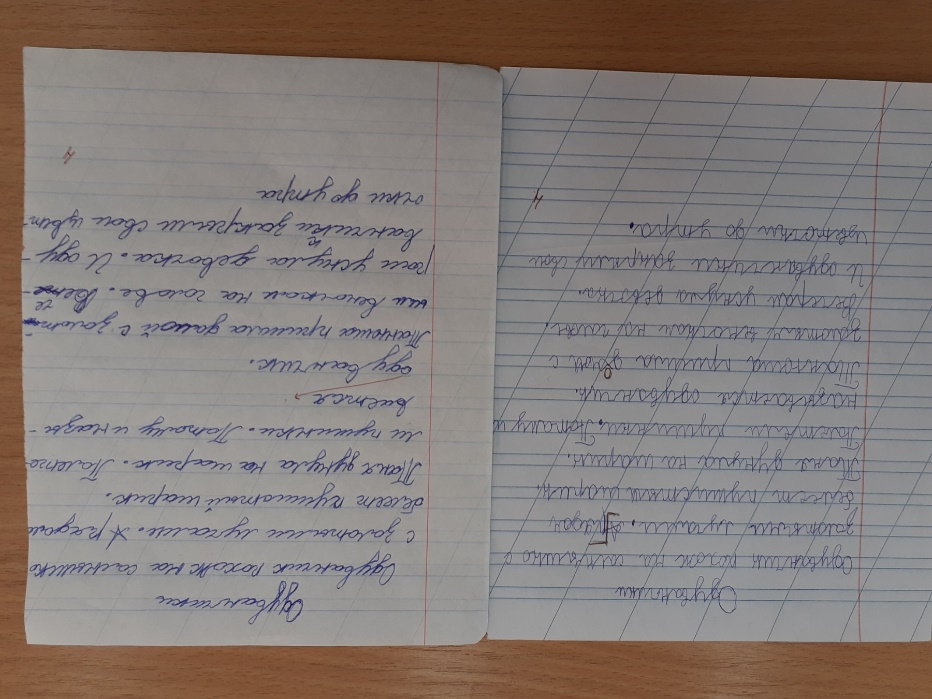 Одуванчики
Одуванчик похож на солнышко с
золотыми лучами. А рядом
белеет пушистый шарик.
Таня дунула на шарик.
Полетели пушинки. Потому и
называется одуванчик.
Танюша пришла домой с
золотым веночком на голове.
Вечером уснула девочка.
И одуванчики закрыли свои
цветочки до утра.
4
Одуванчики
Одуванчик похож на салнышко
с золотыми лучами. А рядом
белеет пушистый шарик.
Таня дунула на шарик. Палете-
ли пушинки. Патаму и назы-
вается
одуванчик.
Танюша пришла дамой с золоты-
веночком на голове. Вече-
ром уснула девочка. И оду-
ванчики закрыли свои цвет-
очки до утра
4